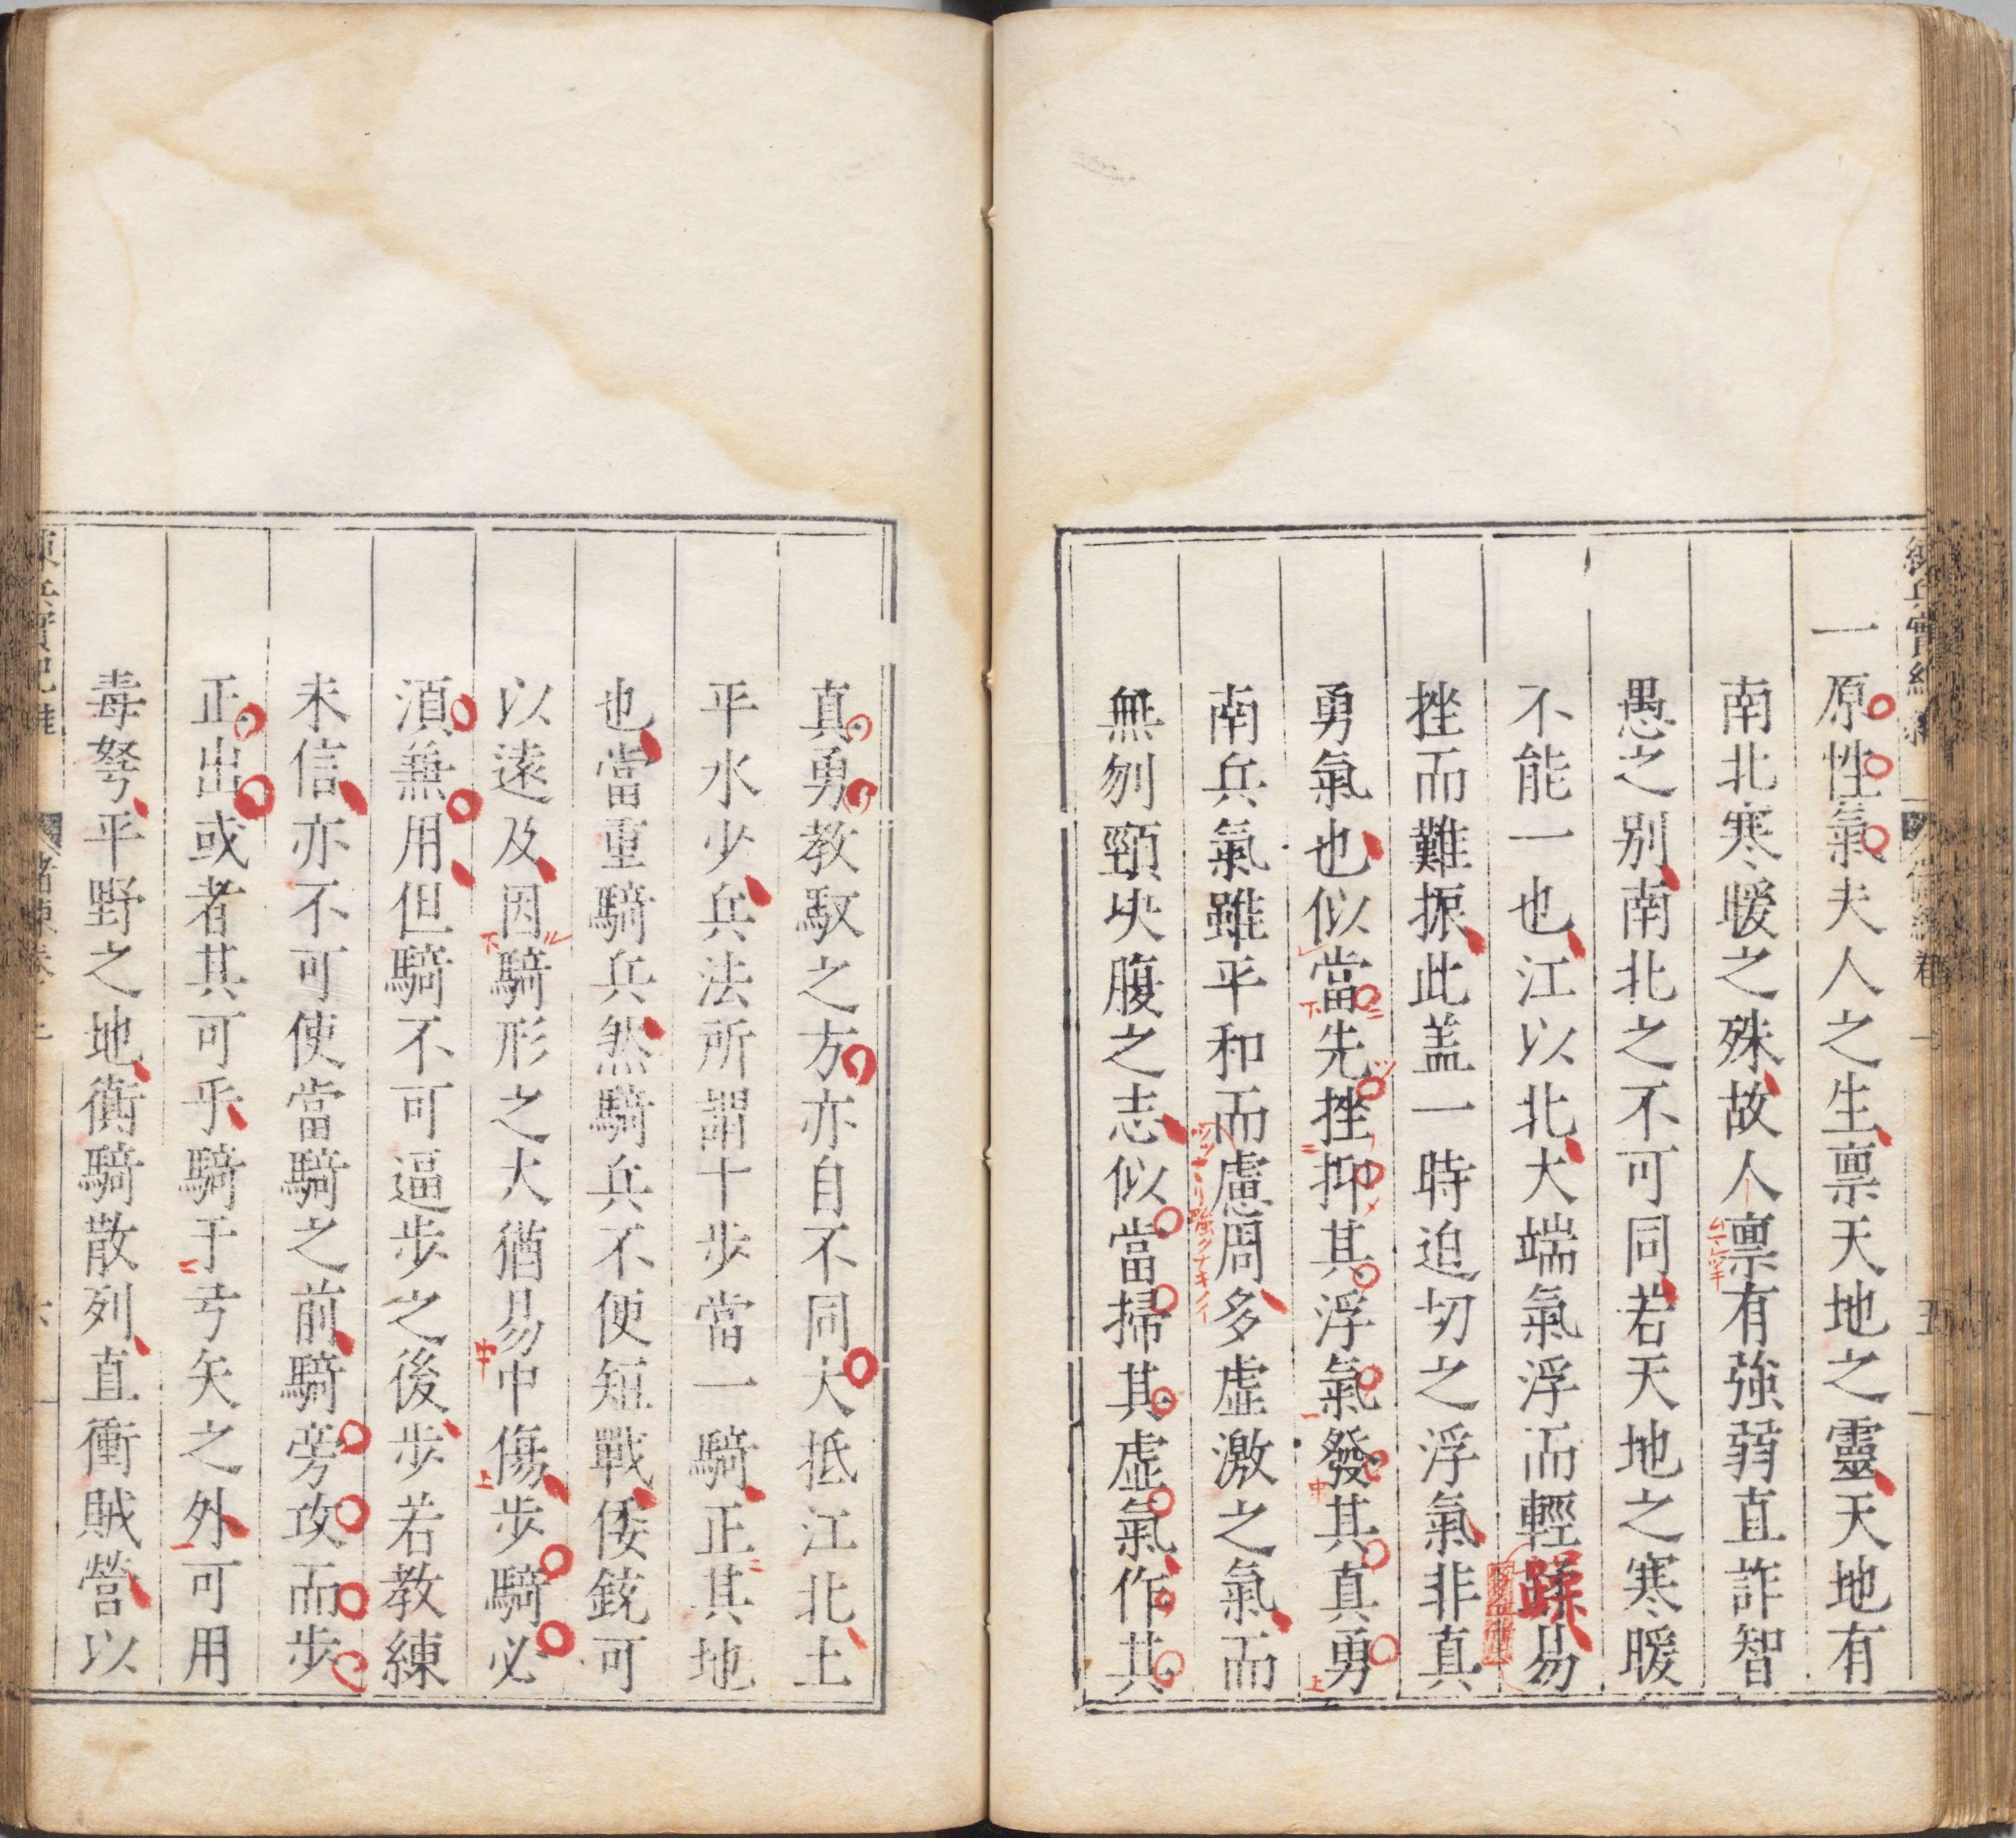 一原性氣夫人之生禀天地之靈天地有
南北寒暖之殊故人禀有強弱直詐智
愚之别南北之不可同若天地之寒暖
不能一也江以北大端氣浮而輕蹂易
挫而難振此盖一時迫切之浮氣非真
勇氣也似當先挫抑其浮氣發其真勇
南兵氣雖平和而慮周多虛激之氣而
無刎頸决腹之志似當掃其虛氣作其
真勇教馭之方亦自不同大抵江北土
平水少兵法所謂十步當一騎正其地
也當重騎兵然騎兵不便短戰倭銃可
以遠及因騎形之大猶易中傷步騎必
須兼用但騎不可逼步之後步若教練
未信亦不可使當騎之前騎旁攻而步
正出或者其可乎騎于弓矢之外可用
毒弩平野之地衝騎散列直衝賊營以